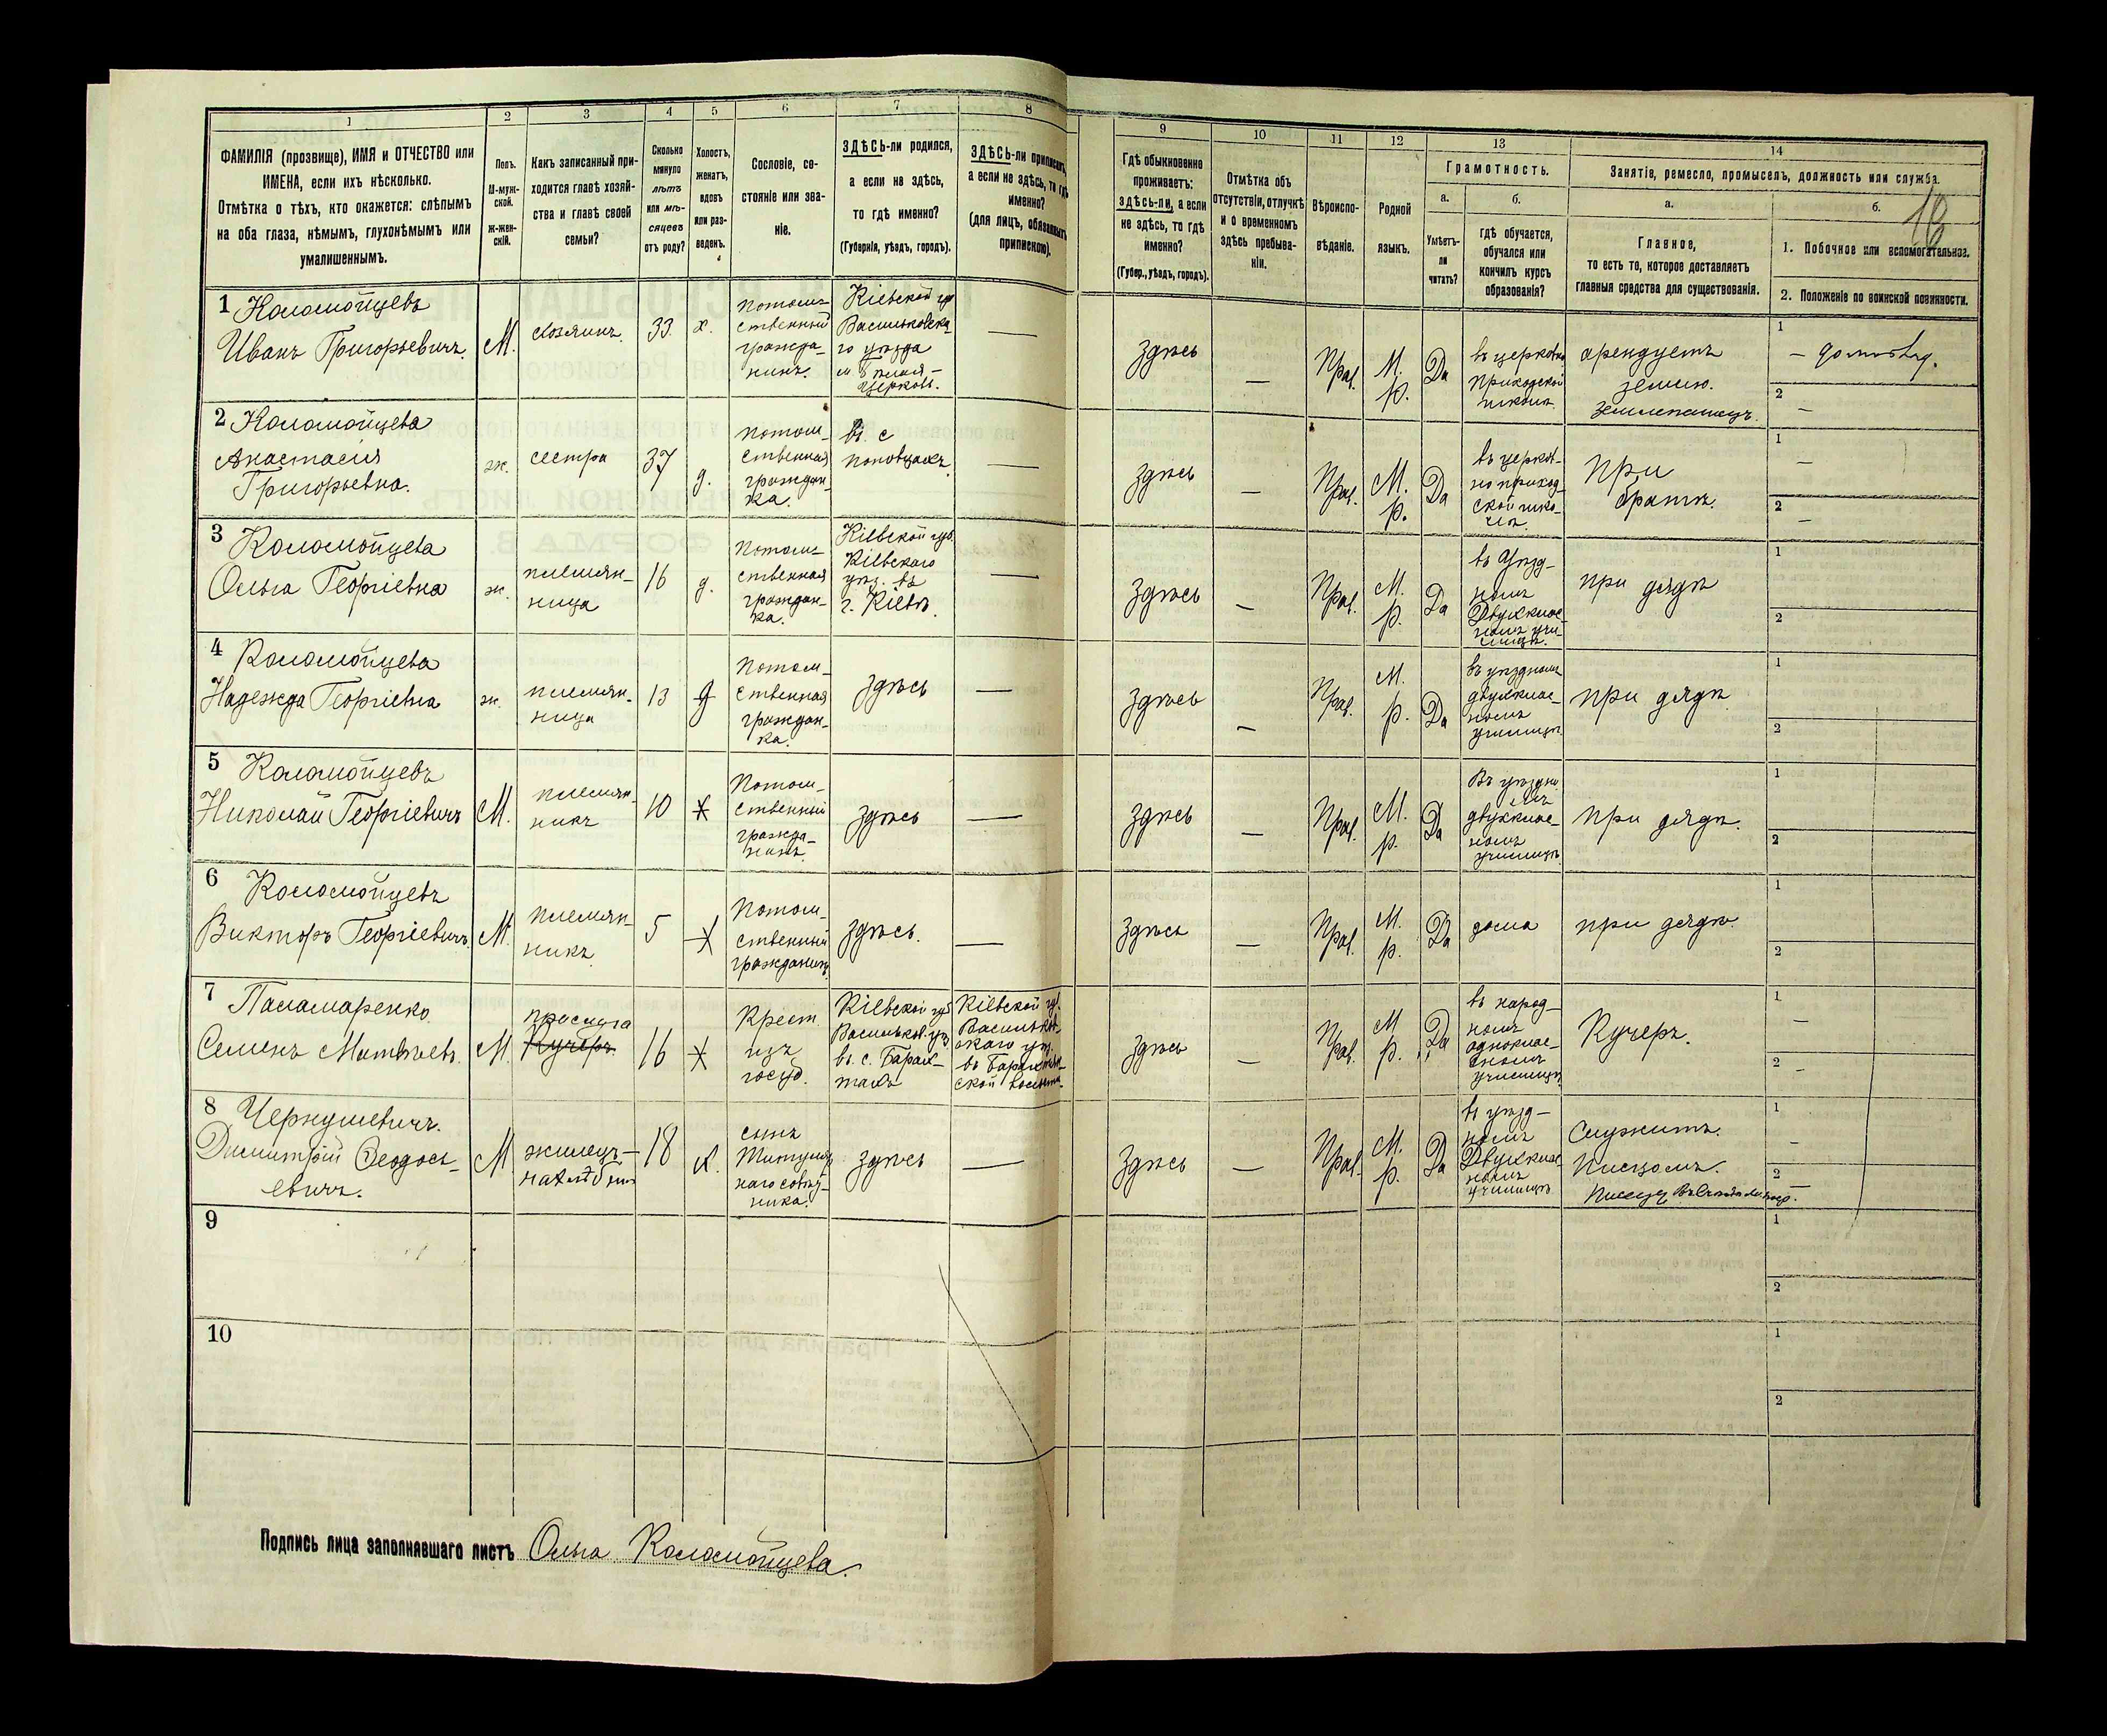 1
ФАМИЛІЯ (прозвище), ИМЯ и ОТЧЕСТВО или
ИМЕНА, если ихъ нѣсколько.
Отмѣтка о тѣхъ, кто окажется: слѣпымъ
на оба глаза, нѣмымъ, глухонѣмымъ или
умалишеннымъ.
2
Полъ.
М-муж-
ской.
Ж-жен-
скій.
3
Какъ записанный при-
ходится главѣ хозяй-
ства и главѣ своей
семьи?
4
Сколько
минуло
лѣтъ
или мѣ-
сяцевъ
отъ роду?
5
Холостъ,
женатъ,
вдовъ
или раз-
веденъ.
6
Сословіе, со-
стояніе или зва-
ніе.
7
ЗДѢСЬ-ли родился,
а если не здѣсь,
то гдѣ именно?
(Губернія, уѣздъ, городъ).
8
ЗДѢСЬ-ли приписанъ,
а если не здѣсь, то гдѣ
именно?
(для лицъ, обязанныхъ
припискою).
9
Гдѣ обыкновенно
проживаетъ:
здѣсь-ли, а если
не здѣсь, то гдѣ
именно?
(Губер., уѣздъ, городъ).
10
Отмѣтка объ
отсутствіи, отлучкѣ
и о временномъ
здѣсь пребыва-
ніи.
11
Вѣроиспо-
вѣданіе.
12
Родной
языкъ.
13
Грамотность.
а.
Умѣетъ-
ли
читать?
б.
гдѣ обучается,
обучался или
кончилъ курсъ
образованія?
14
Занятіе, ремесло, промыселъ, должность или служба.
а.
Главное,
то есть то, которое доставляетъ
главныя средства для существованія.
б.
1. Побочное или вспомогательное.
2. Положеніе по воинской повинности.
18
1 Коломойцевъ
Иванъ Григорьевичъ.
М.
хозяинъ
33.
х.
потом-
ственный
гражда-
нинъ.
Кіевской гу
Васильковска-
го уѣзда
м Бѣлая-
Церковь.
—
здѣсь
—
Прав.
М.
р.
Да
въ церковно
приходской
школѣ
арендуетъ
землю.
землепашецъ.
1
— домовлад.
2
—
2 Коломойцева
Анастасія
Григорьевна.
ж.
сестра
37
д.
потом-
ственная
граждан-
ка.
въ с
Поповцахъ
—
здѣсь
—
Прав.
М.
р.
Да
въ церков-
но приход-
ской шко-
лѣ.
при
братѣ.
1
—
2
—
3 Коломойцева
Ольга Георгіевна
ж.
племян-
ница
16
д.
потом-
ственная
граждан-
ка.
Кіевской губ.
Кіевскаго
уѣз. въ
г. Кіевѣ.
—
здѣсь
—
Прав.
М.
р.
Да
въ Уѣзд-
номъ
Двухклас-
номъ учи-
лищѣ.
при дядѣ
1
2
4 Коломойцева
Надежда Георгіевна
ж.
племян-
ница
13
д
потом-
ственная
граждан-
ка.
здѣсь
—
здѣсь
—
Прав.
М.
р.
Да
въ уѣздномъ
двухклас-
номъ
училищѣ
при дядѣ
1
2
5 Коломойцевъ
Николай Георгіевичъ
М.
племян-
никъ
10
х
Потом-
ственный
гражда-
нинъ.
здѣсь
—
здѣсь
—
Прав.
М.
р.
Да
Въ уѣздно
мъ
двухклас-
номъ
училищѣ.
при дядѣ.
1
2
6 Коломойцевъ
Викторъ Георгіевичъ
М.
племян-
никъ
5
х
Потом-
ственный
гражданинъ
здѣсь.
—
здѣсь
—
Прав.
М.
р.
Да
дома
при дядѣ.
1
2
7 Паламаренко
Семенъ Матвѣевъ.
М.
прислуга
Кучеръ
16
х
Крест
изъ
госуд.
Кіевской губ
Васильков. уѣз
въ с. Барах-
тахъ
Кіевской гу.
Васильков-
скаго уѣз.
въ Барахтян-
ской волости
здѣсь
—
Прав.
М
р.
Да
въ народ-
номъ
одноклас-
сномъ
училищѣ
Кучеръ.
1
—
2
—
8 Чернушевичъ.
Димитрій Ѳеодось-
евичъ.
М
жилецъ-
18
х.
сынъ
Титуляр
наго совѣт-
ника.
здѣсь
—
здѣсь
—
Прав.
М.
р.
Да
въ уѣзд-
номъ
Двухклас-
номъ
училищѣ
Служитъ.
писцомъ.
Писецъ
1
—
2
—
9
1
2
10
1
2
Подпись лица заполнявшаго листъ Ольга Коломойцева.